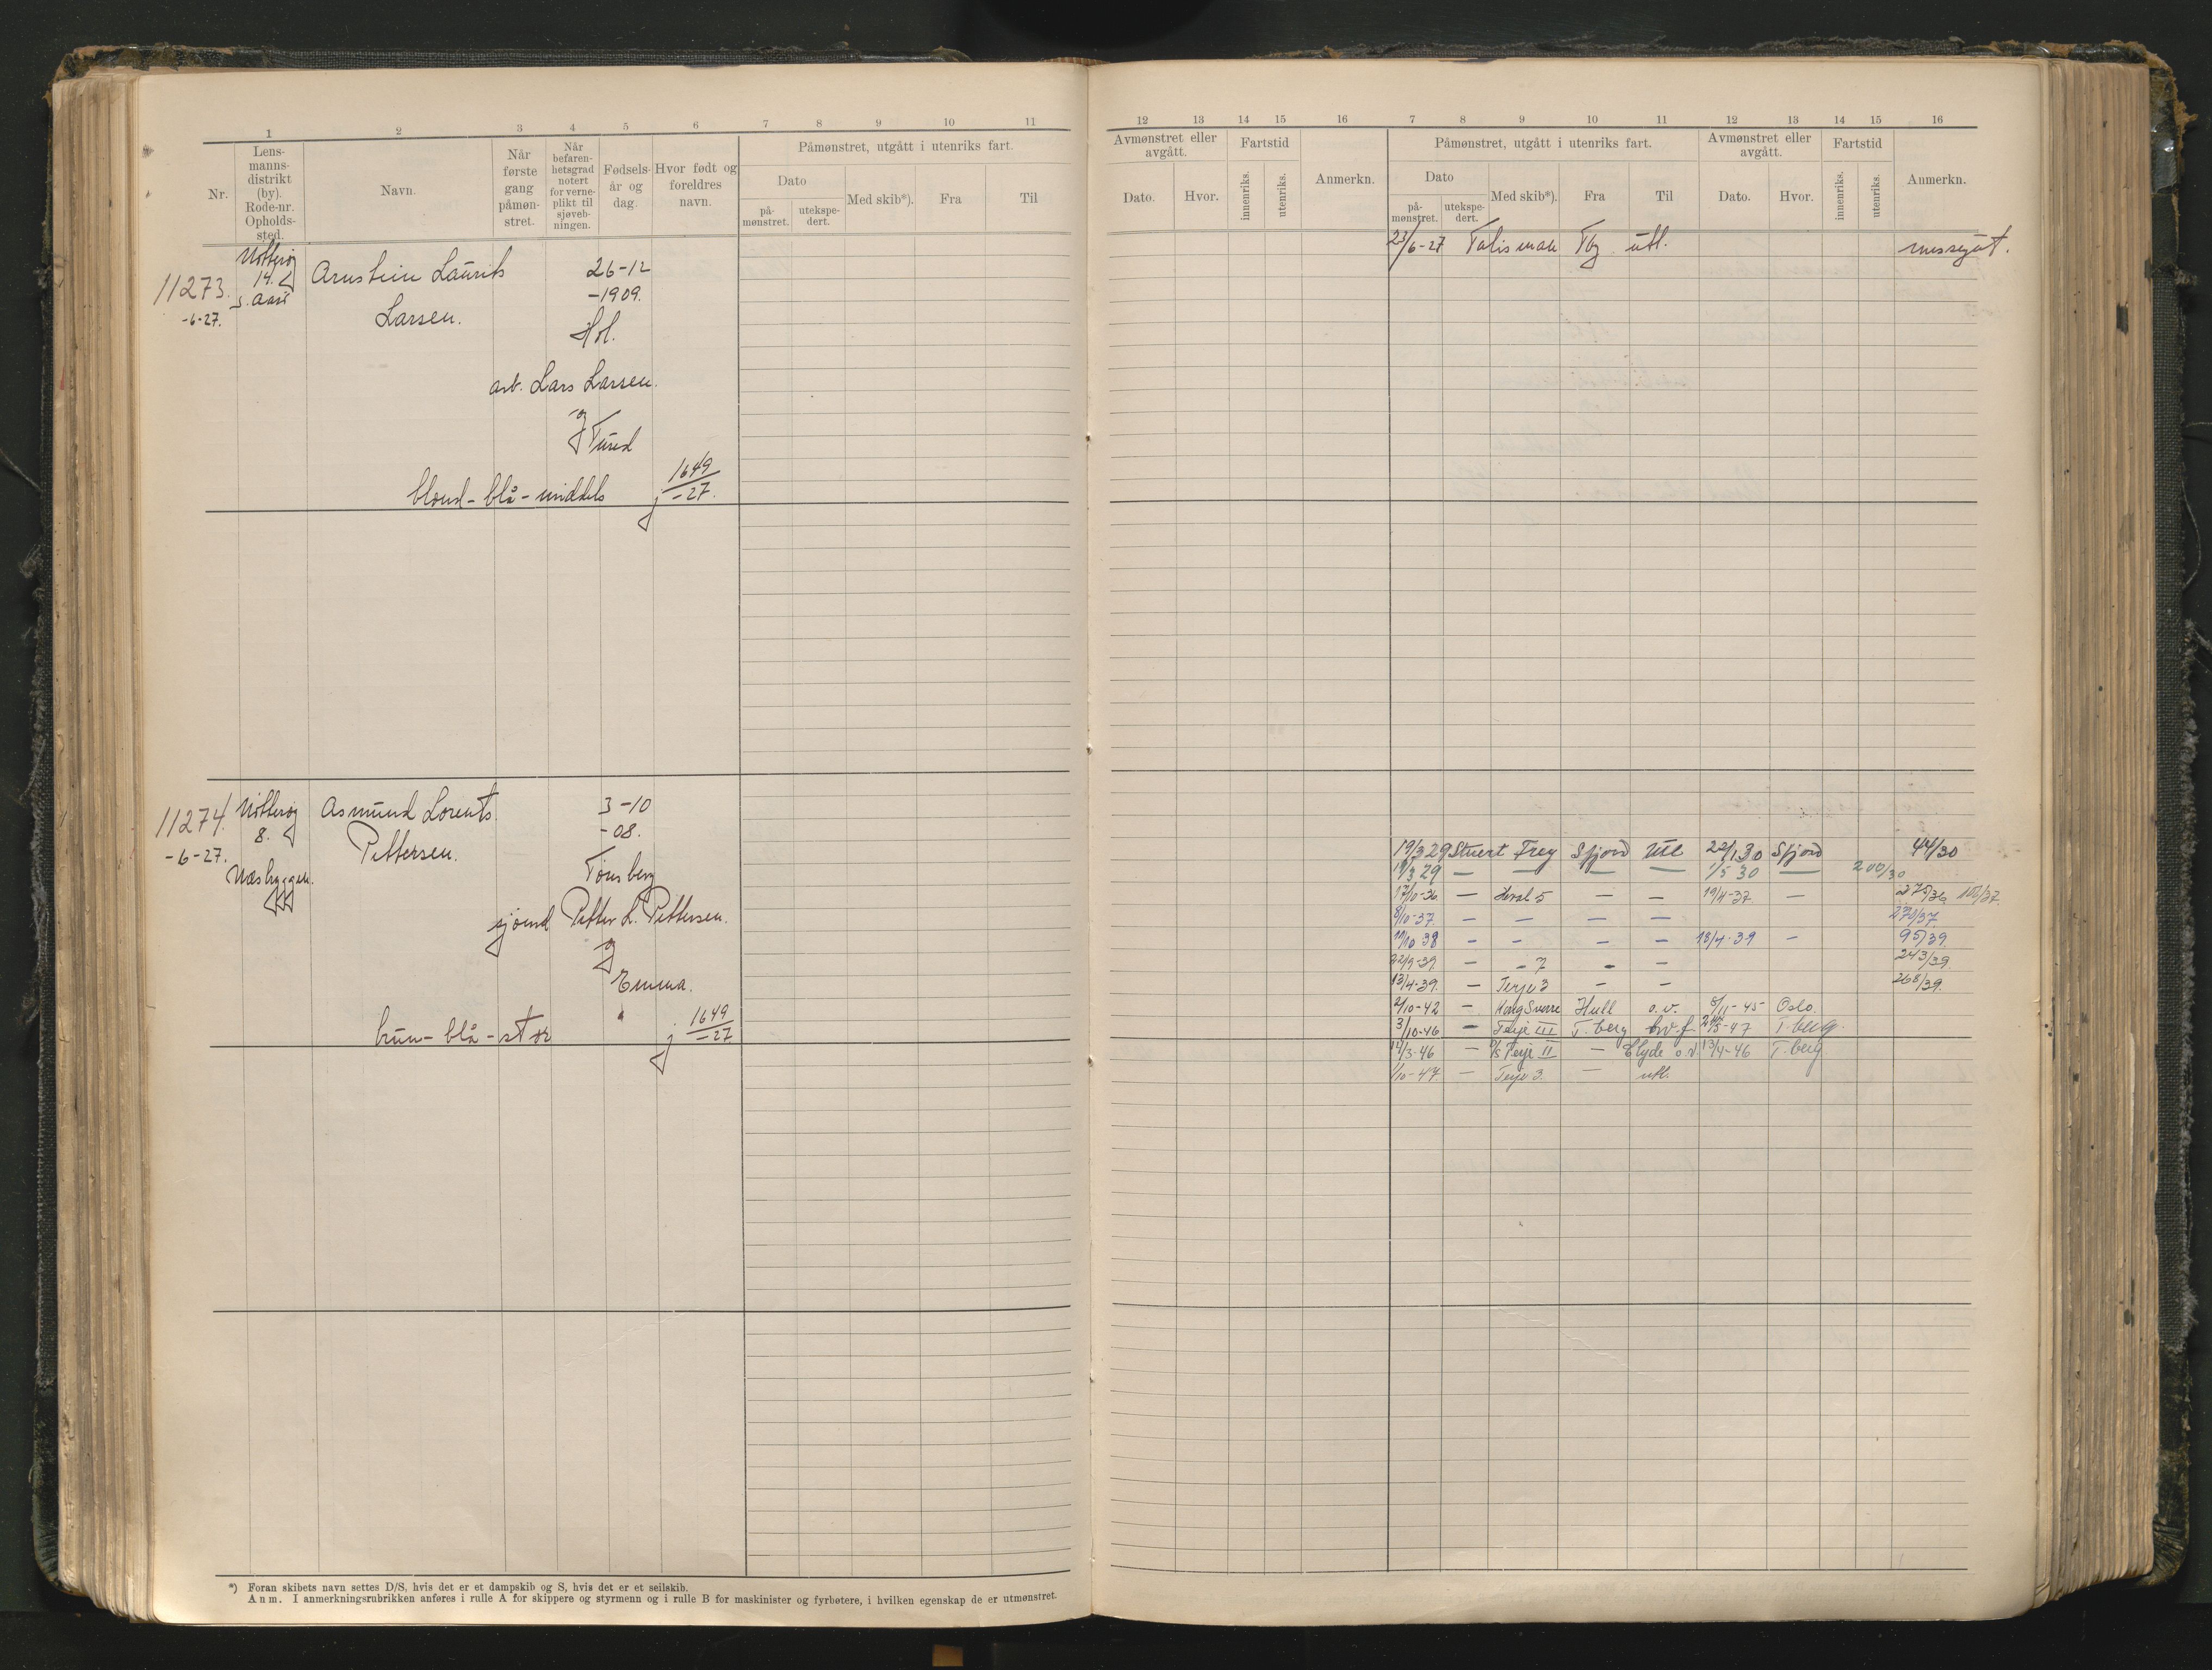 1 2 3 4 5 6 7 8 9 10 11
Nr.
Lens-
manns-
distrikt
(by).
Rode-nr.
Opholds-
sted.
Navn.
Når
første
gang
påmøn-
stret.
Når
befaren-
hetsgrad
notert
for verne-
plikt til
sjøveb-
ningen.
Fødsels-
år og
dag.
Hvor født og
foreldres
navn.
Påmønstret, utgått i utenriks fart.
Dato
på-
mønstret.
utekspe-
dert.
Med skib*).
Fra
Til
11273.
-6-27.
Nøtterøy
14.
Arnstein Laurits
Larsen.
26-12
-1909.
Hol.
arb. Lars Larsen.
og
Turid
blond - blå - middels
1649
-27.
11274.
-6-27.
Nøtterøy
8.
Asmund Lorents
Pettersen.
3-10
-08.
Tønsberg
sjømd Petter L. Pettersen.
og
Emma.
brun - blå - stor
1649
-27
*) Foran skibets navn settes D/S, hvis det er et dampskib og S, hvis det er et seilskib.
Anm. I anmerkningsrubrikken anføres i rulle A for skippere og styrmenn og i rulle B for maskinister og fyrbøtere, i hvilken egenskap de er utmønstret.
12 13 14 15 16 7 8 9 10 11 12 13 14 15 16
Avmønstret eller
avgått.
Dato.
Hvor.
Fartstid
innenriks.
utenriks.
Anmerkn.
Påmønstret, utgått i utenriks fart.
Dato
på-
mønstret.
utekspe-
dert.
Med skib*).
Fra
Til
Avmønstret eller
avgått.
Dato.
Hvor.
Fartstid
innenriks.
utenriks.
Anmerkn.
23/6-27 Talisman Tbg utl. messegut.
19/3 29 Stuert Frey Sfjord Utl 22/1 30 Sfjord 44/30
19/3 29 — — — — 1/5 30 — 200/30
17/10-36 — — — 19/4-37 — 275/36
8/10-37 — — — — 270/37
10/10 38 — — — — 18/4-39 — 95/39.
22/9-39 — — 7 — — 243/39.
13/4-39. — Terje 3 — — 268/39.
2/10-42 — Kong Sverre Hull o.v. 8/11-45 Oslo.
3/10-46 — Terje III T.berg hv.f 21/5-47 T.berg.
12/3-46 — Terje II — Clyde o.v 13/4-46 T.berg.
1/10-47 — Terje 3. — utl.